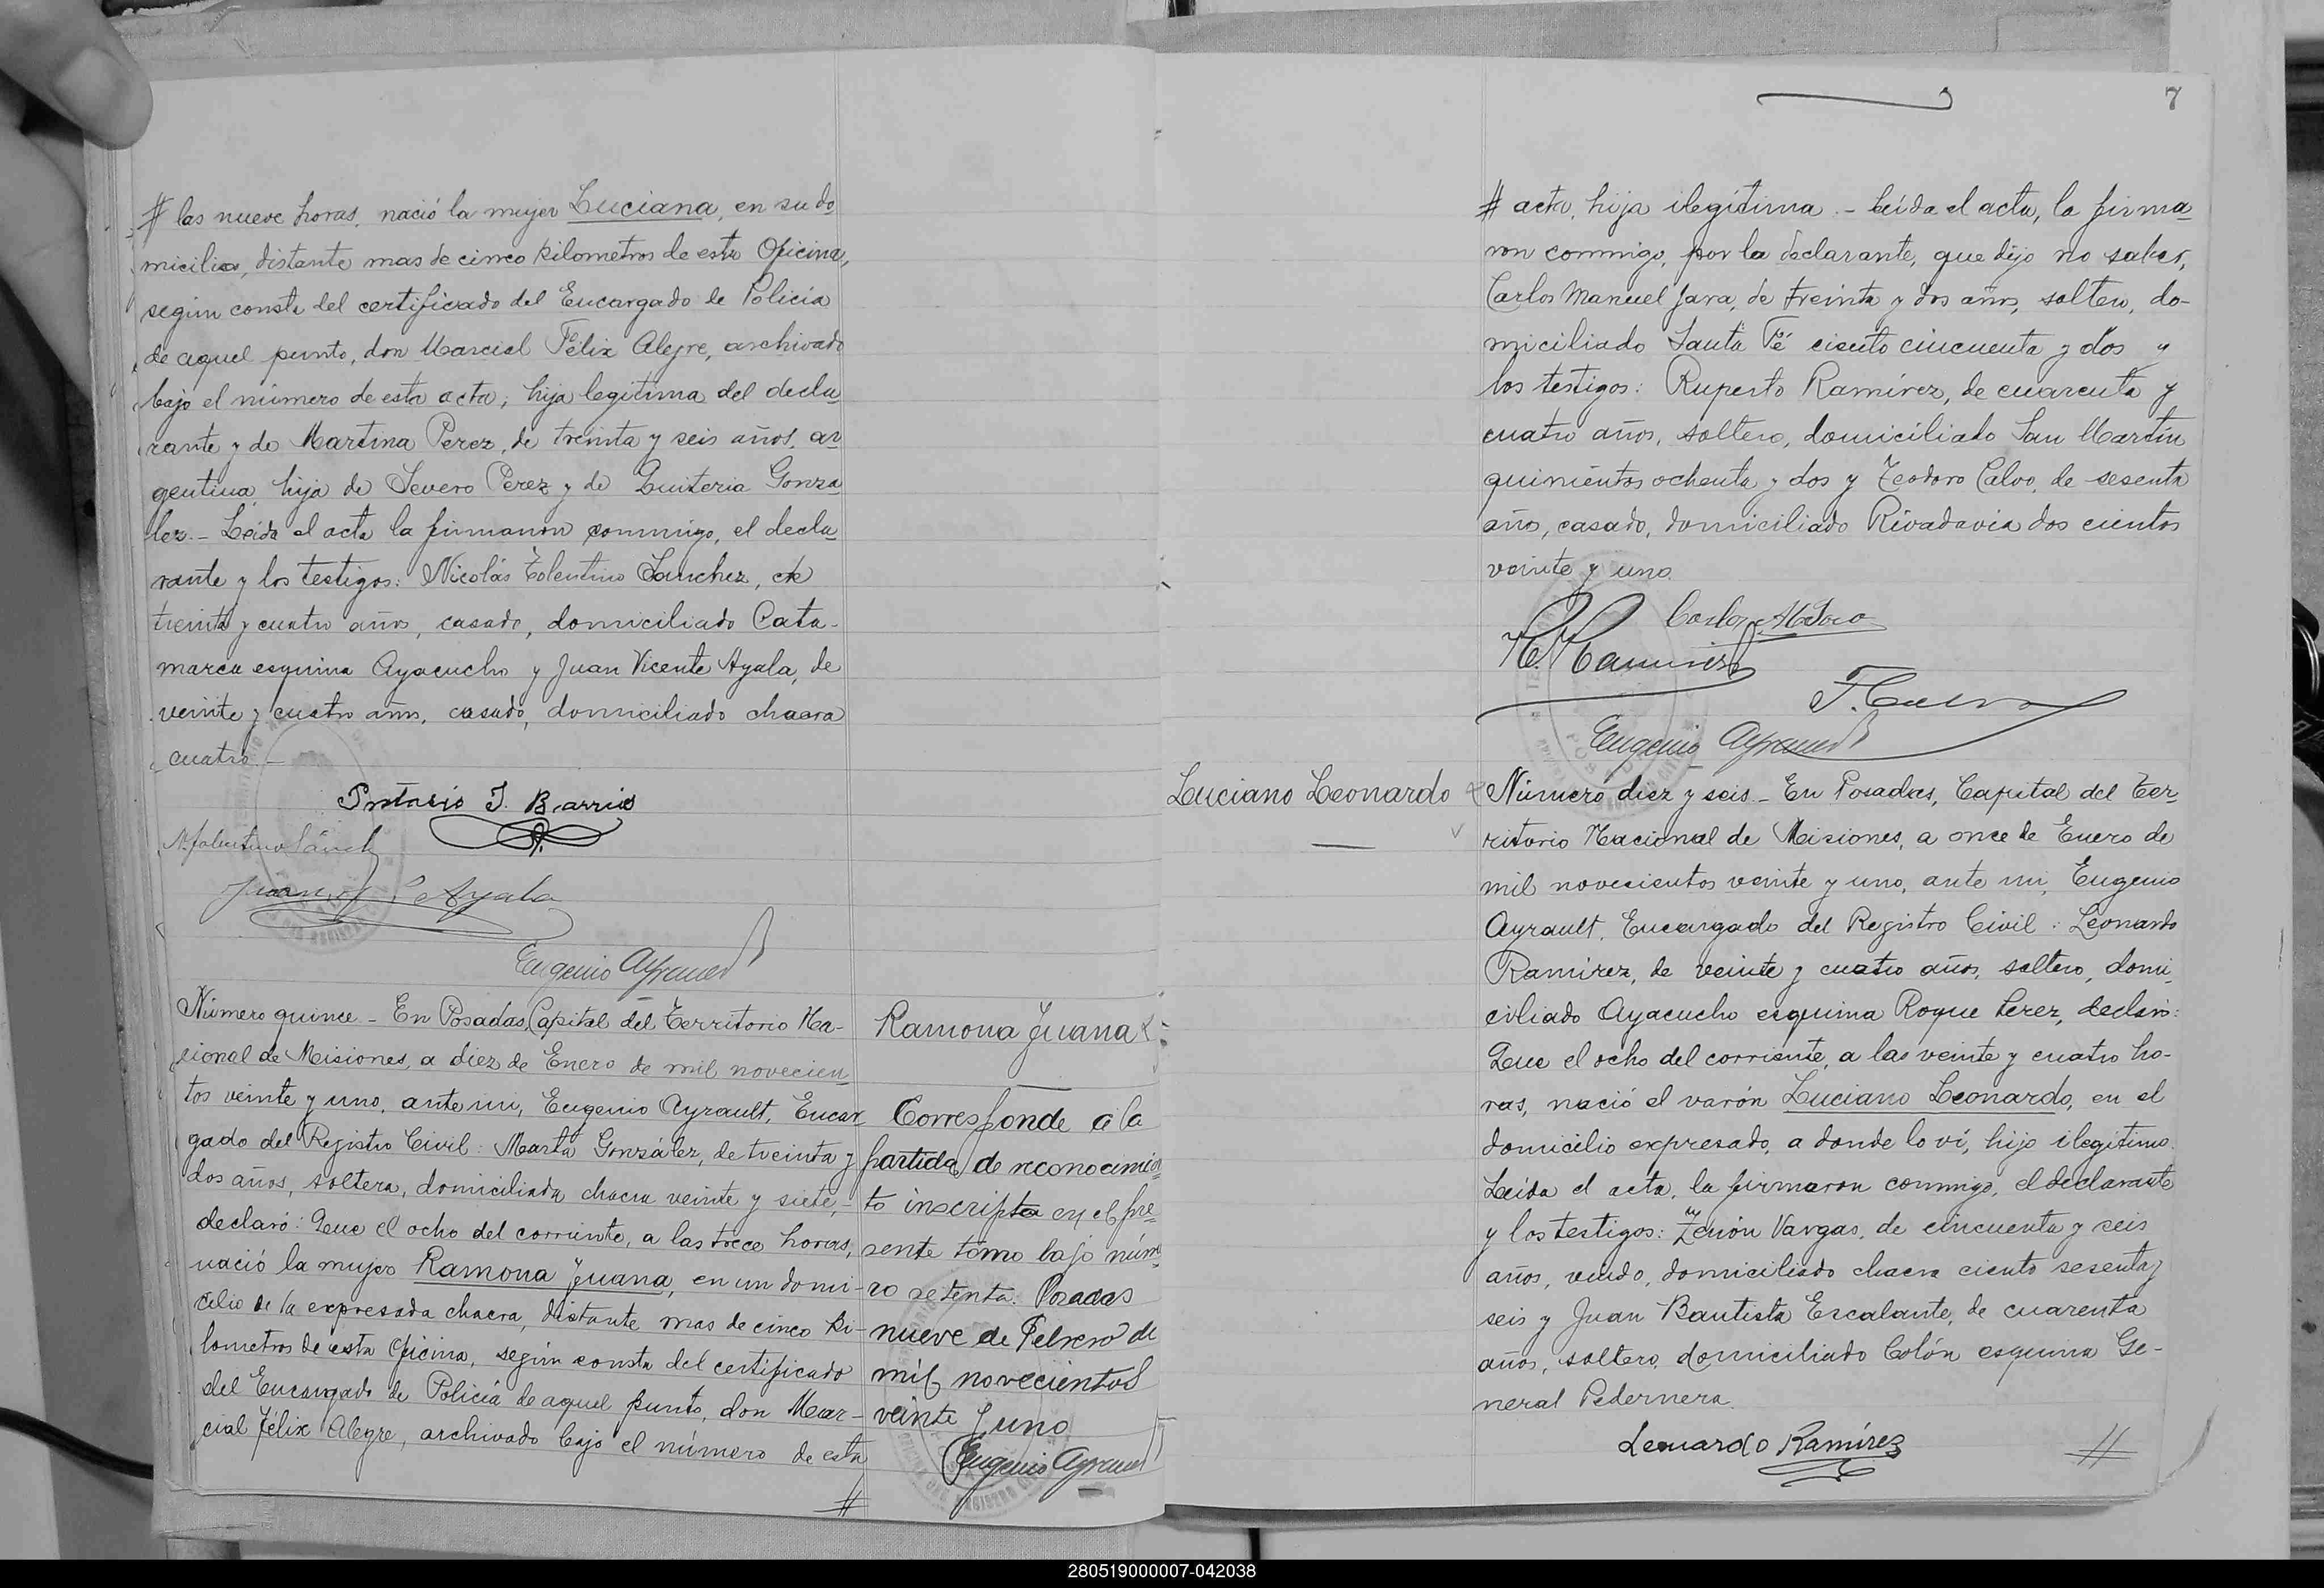 # las nueve horas, nació la mujer Luciana, en su do
micilio, distante mas de cinco kilometros de esta Oficina,
según consta del certificado del Encargado de Policía
de aquel punto, don Marcial Félix Alegre, archivado
bajo el número de esta acta; hija legitima del decla
rante y de Martina Perez, de treinta y seis años, ar
gentina, hija de Severo Perez y de Quiteria Gonza
lez.- Leida el acta la firmaron conmigo, el decla
rante y los testigos: Nicolás Tolentino Sanchez, de
treinta y cuatro años, casado, domiciliado Cata-
marca esquina Ayacucho y Juan Vicente Ayala, de
veinte y cuatro años, casado, domiciliado chacra
cuatro.-
Protasio J. Barrios
N. Tolentino Sánch
Juan V. Ayala
Eugenio Ayrault
Número quince - En Posadas, Capital del Territorio Na-
cional de Misiones, a diez de Enero de mil novecien
tos veinte y uno, ante mi, Eugenio Ayrault, Encar
gado del Registro Civil: Marta González, de treinta y
dos años, soltera, domiciliada chacra veinte y siete,-
declaró: Que el ocho del corriente, a las trece horas,
nació la mujer Ramona Juana, en un domi-
cilio de la expresada chacra, distante mas de cinco ki-
lometros de esta Oficina, según consta del certificado
del Encargado de Policía de aquel punto, don Mar-
cial Félix Alegre, archivado bajo el número de esta
#
Ramona Juana
Corresponde a la
partida de reconocimien
to inscripta en el pre-
sente tomo bajo núme
ro setenta. Posadas
nueve de Febrero de
mil novecientos
veinte y uno
Eugenio Ayrault
7
# acta, hija ilegítima.- Leída el acta, la firma
ron conmigo, por la declarante, que dijo no saber,
Carlos Manuel Jara, de treinta y dos años, soltero, do-
miciliado Santa Fé ciento cincuenta y dos y
los testigos: Ruperto Ramírez, de cuarenta y
cuatro años, soltero, domiciliado San Martín
quinientos ochenta y dos y Teodoro Calvo, de sesenta
años, casado, domiciliado Rivadavia dos cientos
veinte y uno.
Carlos M Jara
R. Ramirez
T. Calvo
Eugenio Ayrault
Luciano Leonardo
Número diez y seis - En Posadas, Capital del Ter-
ritorio Nacional de Misiones, a once de Enero de
mil novecientos veinte y uno, ante mi, Eugenio
Ayrault, Encargado del Registro Civil: Leonardo
Ramírez, de veinte y cuatro años, soltero, domi-
ciliado Ayacucho esquina Roque Perez, declaró:
Que el ocho del corriente, a las veinte y cuatro ho-
ras, nació el varón Luciano Leonardo, en el
domicilio expresado, a donde lo ví, hijo ilegítimo.
Leída el acta, la firmaron conmigo, el declarante
y los testigos: Zenón Vargas, de cincuenta y seis
años, viudo, domiciliado chacra ciento sesenta y
seis y Juan Bautista Escalante, de cuarenta
años, soltero, domiciliado Colón esquina Ge-
neral Pedernera.
Leonardo Ramírez
#
280519000007-042038